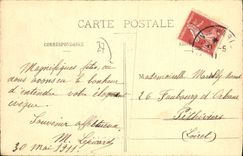 CARTE POSTALE
CORRESPONDANCE
27
Magnifiques fêtes où
nous avons eu le bonheur
d'entendre votre éloquent
évêque.
Souvenir affectueux
M.
30 mai 1911.
Mademoiselle
26 Faubourg d'Orléans
Pithiviers
(Loiret)